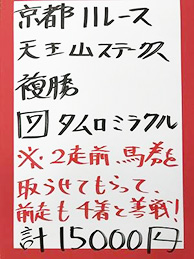 京都11レース
天王山ステークス
複勝
⑦タムロミラクル
※2走前、馬券を
取らせてもらって、
前走も4着と善戦!
計15000円